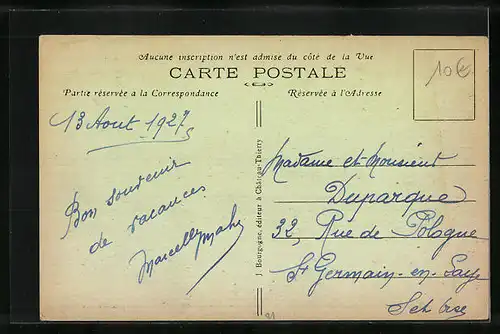 Aucune inscription n'est admise du côté de la Vue
CARTE POSTALE
Partie réservée a la Correspondance
Réservée à l'Adresse
10€
13 Aout 1927
Bon souvenir
de vacances
J. Bourgogne, éditeur à Château-Thierry
Madame et Monsieur
Duparque
32, Rue de Pologne
St Germain-en-Laye
Set Oise
91